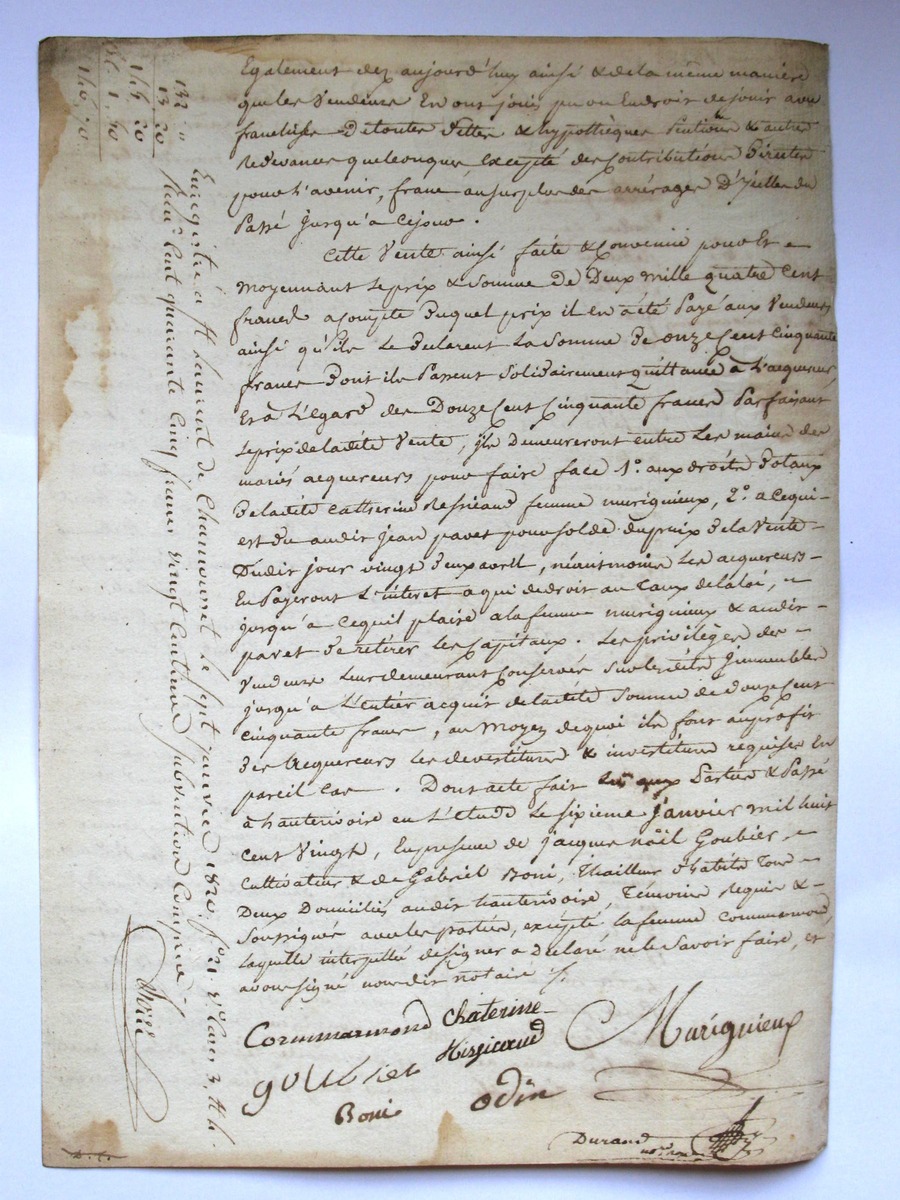 Egalement dez aujourd'huy ainsi & de la même maniere
que les Vendeurs En ont jouis pu ou Endroit de jouir avec
franchise De toutes dettes & hypothèques Pentions & autres
Redevances quelconques Excepté des Contributions Directes
pour l'avenir, franc ausurplus des arrérages D'Icelles du
Passé jusqu'à ce jour.
Cette Vente ainsi faite & Convenue pour Et
moyennant Le prix & Somme De Deux mille quatre Cent
francs acompte Duquel prix il en a été Payé aux Vendeurs
ainsi qu'ils Le Declarent La Somme De onze Cent Cinquante
francs Dont ils Passent Solidairement quittance à L'acquereur
Et à L'égard des Douze Cent Cinquante francs Parfaisant
Le prix de ladite Vente, ils Demeureront entre Les mains des
mariés acquereurs pour faire face 1º. aux droits Dotaux
De ladite Catherine femme murigneux, 2º. a Cequi
est Du audit jean pavet pour solde du prix De la Vente
Dudit jour vingt Deux avril, néanmoins Les acquereurs
En Payeront L'interet a qui de droit au Taux de la loi,
jusqu'à Cequil plaise a la femme murigneux & audit
pavet De retirer Les Capitaux. Les privilèges des
Vendeurs Leur demeurant Conservés Sur lesdits Immeubles
jusqu'à L'entier acquit de ladite Somme de Douze Cent
Cinquante francs, au moyen de quoi ils font au profit
Des Acquereurs Les devestitures & investitures requises En
pareil Cas. Dont acte fait Lu aux Parties & Passé
à hauterivoire en L'etude Le Sixieme Janvier mil huit
Cent Vingt, En presence de Jacques Noël Goubier,
Cultivateur & de Gabriel Boni, Thailleur d'habits Tous
Deux Domiciliés audit hauterivoire, Témoins Requis &
Soussignés avec les parties, excepté la femme Commarmond,
Laquelle interpellé de signer a Declaré ne le Savoir faire, et
avons signé nous dit notaire
Commarmond Chaterine
Murigneux
goubier
Boni odin
Durand
132 "
13 20
145 20
1 50
146 70
Enregistré à St Laurent de Chamousset le sept janvier 1820,
Reçu Cent quarante Cinq francs Vingt Centimes Subvention Comprise